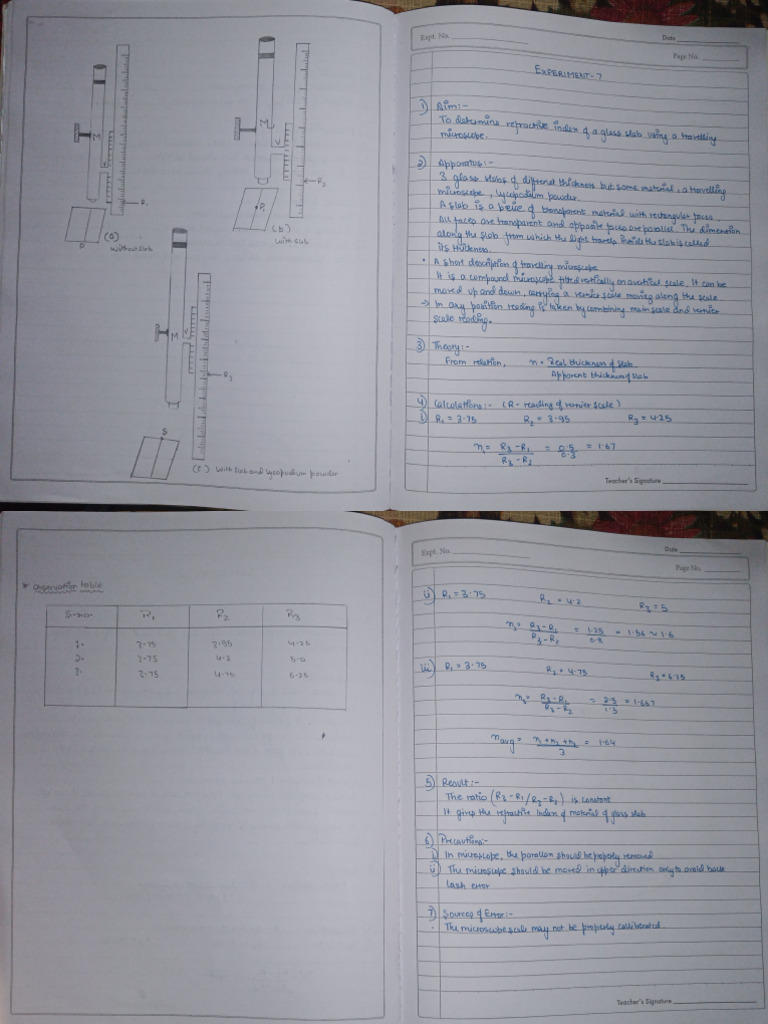 M
V
R1
P
(a)
without slab
M
V
R2
P1
(b)
with slab
M
V
R3
S
(c) with slab and lycopodium powder
Expt. No.
Date
Page No.
EXPERIMENT-7
1) Aim:-
To determine refractive index of a glass slab using a travelling
microscope.
2) Apparatus:-
3 glass slabs of different thickness but same material, a travelling
microscope, lycopodium powder.
A slab is a peice of transparent material with rectangular faces.
All faces are transparent and opposite faces are parallel. The dimension
along the slab from which the light travels inside the slab is called
its thickness.
• A short description of travelling microscope
It is a compound microscope fitted vertically on a vertical scale. It can be
moved up and down, carrying a vernier scale moving along the scale
→ In any position reading is taken by combining main scale and vernier
scale reading.
3) Theory:-
From relation, n = Real thickness of slab
Apparent thickness of slab
4) Calculations:- (R - reading of vernier scale)
i) R1 = 3.75 R2 = 3.95 R3 = 4.25
n1 = R3 - R1 / R3 - R2 = 0.5 / 0.3 = 1.67
Teacher's Signature
Observation table
S.no. R1 R2 R3
1. 3.75 3.95 4.25
2. 3.75 4.2 5.0
3. 3.75 4.75 6.25
Expt. No.
Date
Page No.
ii) R1 = 3.75 R2 = 4.2 R3 = 5
n2 = R3 - R1 / R3 - R2 = 1.25 / 0.8 = 1.56 ≈ 1.6
iii) R1 = 3.75 R2 = 4.75 R3 = 6.25
n3 = R3 - R1 / R3 - R2 = 2.5 / 1.5 = 1.667
navg = n1 + n2 + n3 / 3 = 1.64
5) Result:-
The ratio (R3 - R1 / R3 - R2) is constant
It gives the refractive index of material of glass slab
6) Precautions:-
i) In microscope, the parallax should be properly removed
ii) The microscope should be moved in upper direction only to avoid back
lash error
7) Sources of Error:-
· The microscope scale may not be properly calliberated.
Teacher's Signature